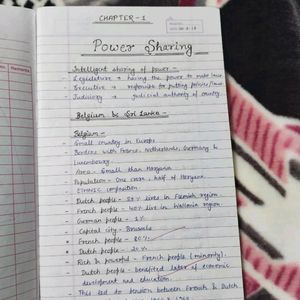 CHAPTER - 1
Power Sharing
Intelligent sharing of power -
- Legislature → having the power to make laws
- Executive → responsible for putting policies/laws
- Judiciary → judicial authority of country.
Belgium & Sri Lanka -
Belgium -
- Small country in Europe
- Borders with France, Netherlands, Germany &
Luxembourg.
- Area - Small than Haryana
- Population - One crore, half of Haryana
- Ethnic composition
- Dutch people - 59% lives in Flemish region
- French people - 40% live in Wallonia region
- German people - 1%
- Capital city - Brussels
* French people - 80%
* Dutch people - 20%
- Rich & powerful - French people (minority).
- Dutch people - benefited later of economic
development and education.
This led to tension between French & Dutch